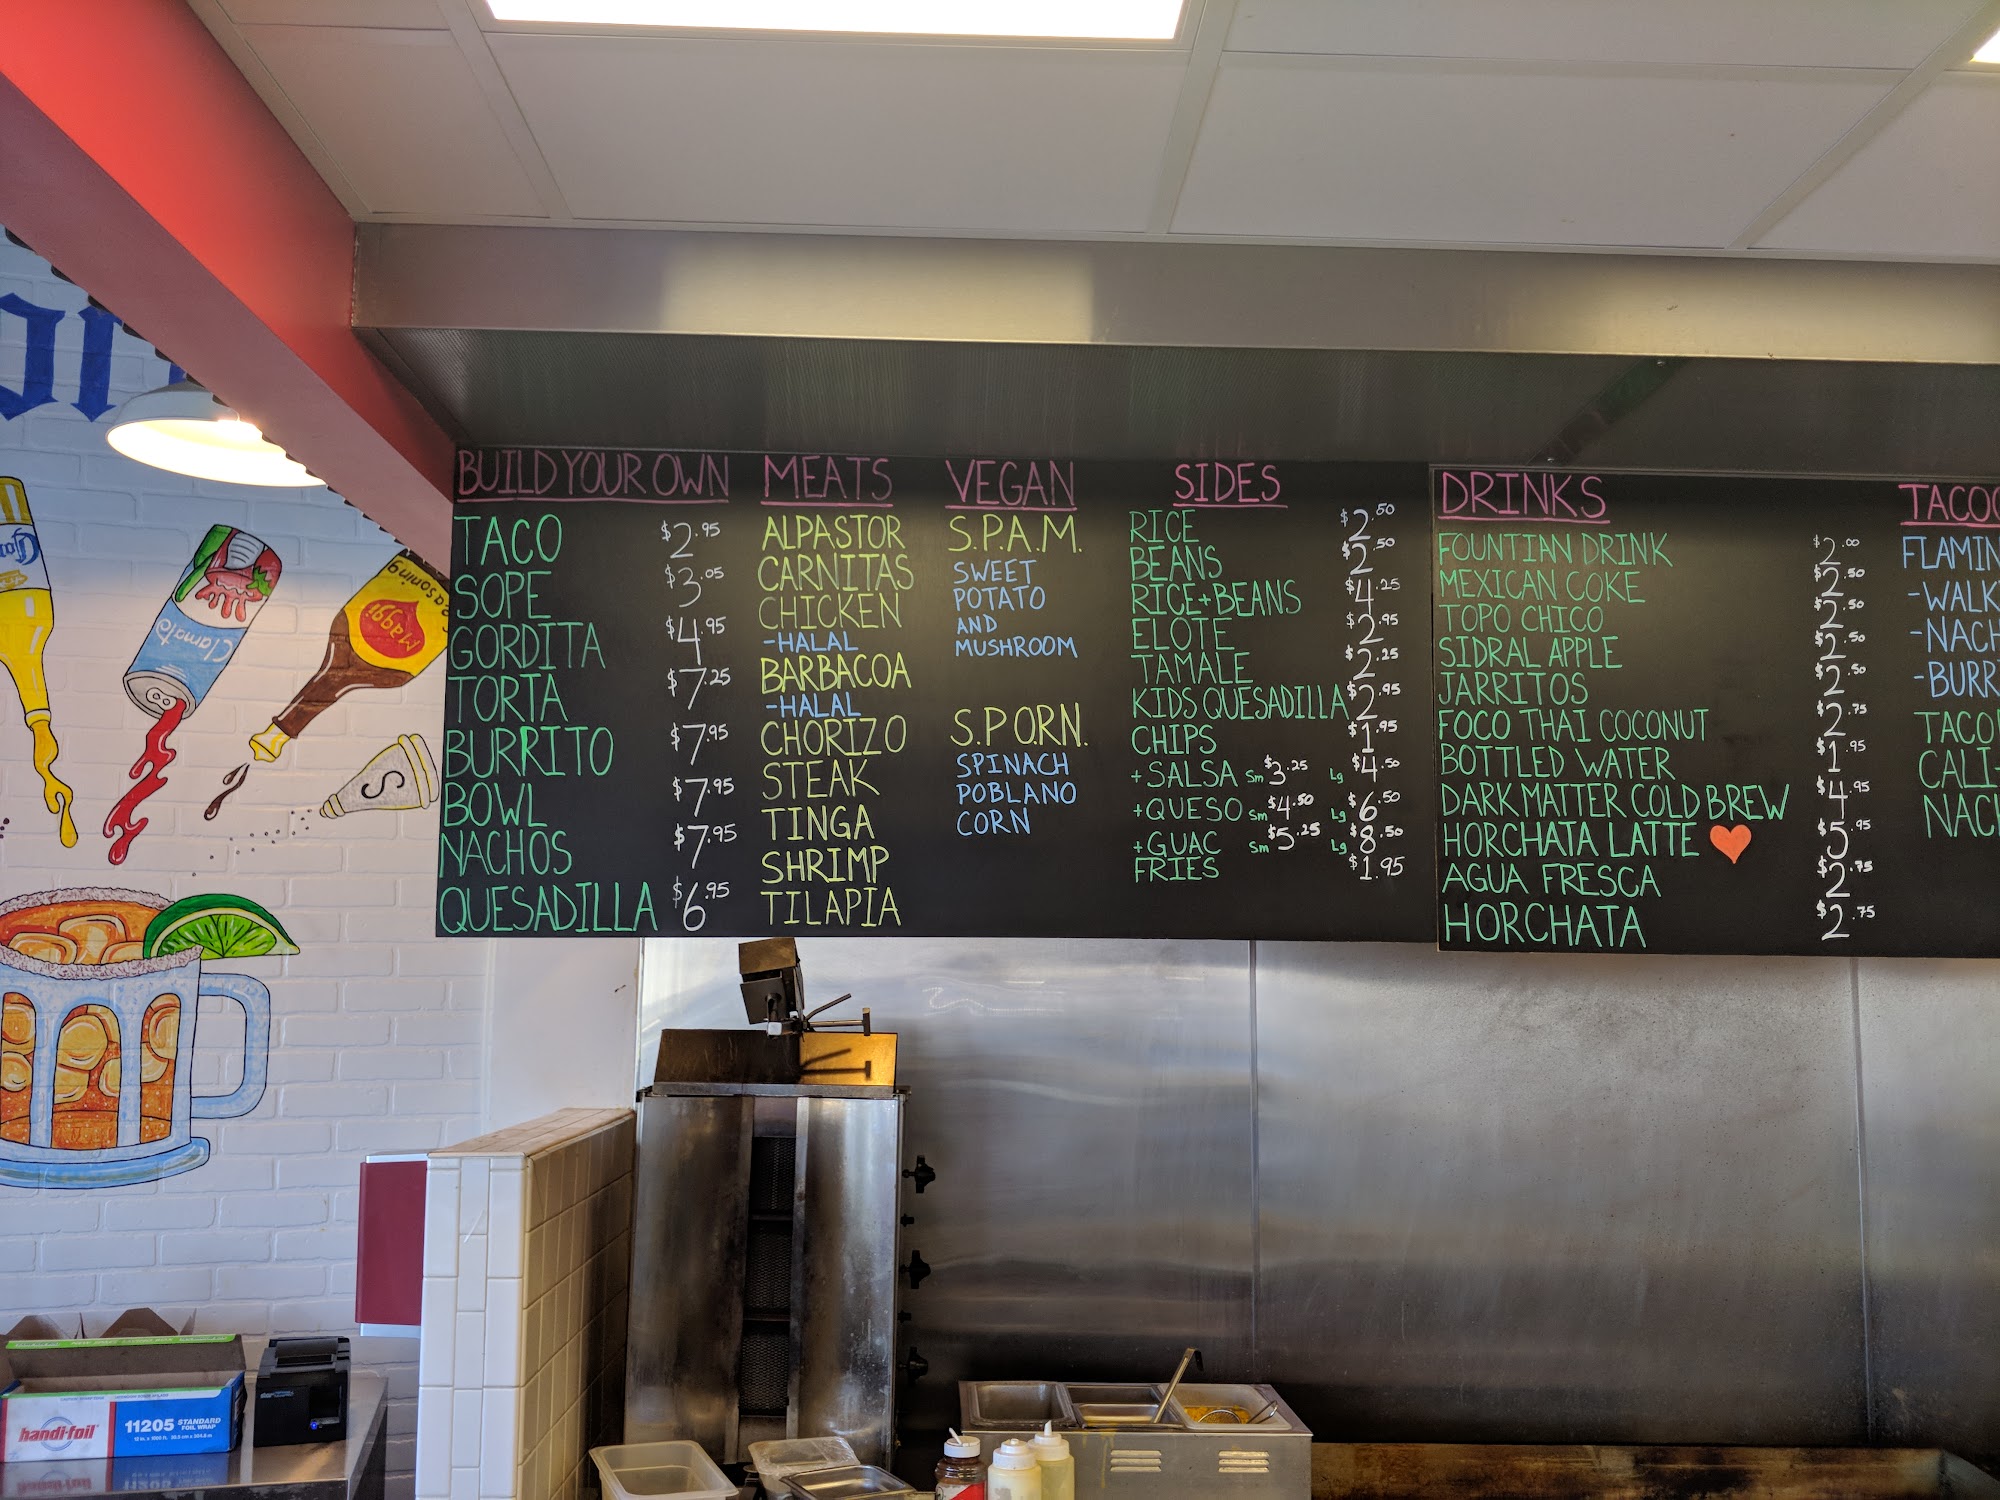 BUILD YOUR OWN
TACO $2.95
SOPE $3.05
GORDITA $4.95
TORTA $7.25
BURRITO $7.95
BOWL $7.95
NACHOS $7.95
QUESADILLA $6.95
MEATS
ALPASTOR
CARNITAS
CHICKEN
-HALAL
BARBACOA
-HALAL
CHORIZO
STEAK
TINGA
SHRIMP
TILAPIA
VEGAN
S.P.A.M.
SWEET
POTATO
AND
MUSHROOM
S.P.O.R.N.
SPINACH
POBLANO
CORN
SIDES
RICE $2.50
BEANS $2.50
RICE+BEANS $4.25
ELOTE $2.95
TAMALE $2.25
KIDS QUESADILLA $2.95
CHIPS $1.95
+SALSA Sm $3.25 Lg $4.50
+QUESO Sm $4.50 Lg $6.50
+GUAC Sm $5.25 Lg $8.50
FRIES $1.95
DRINKS
FOUNTIAN DRINK $2.00
MEXICAN COKE $2.50
TOPO CHICO $2.50
SIDRAL APPLE $2.50
JARRITOS $2.50
FOCO THAI COCONUT $2.75
BOTTLED WATER $1.95
DARK MATTER COLD BREW $4.95
HORCHATA LATTE $5.95
AGUA FRESCA $2.75
HORCHATA $2.75
TACO
FLAMIN
-WALK
-NACH
-BURR
TACO
CALI-
NACH
Clamato
Maggi
Seasoning
S
handi-foil
11205 STANDARD
FOIL WRAP